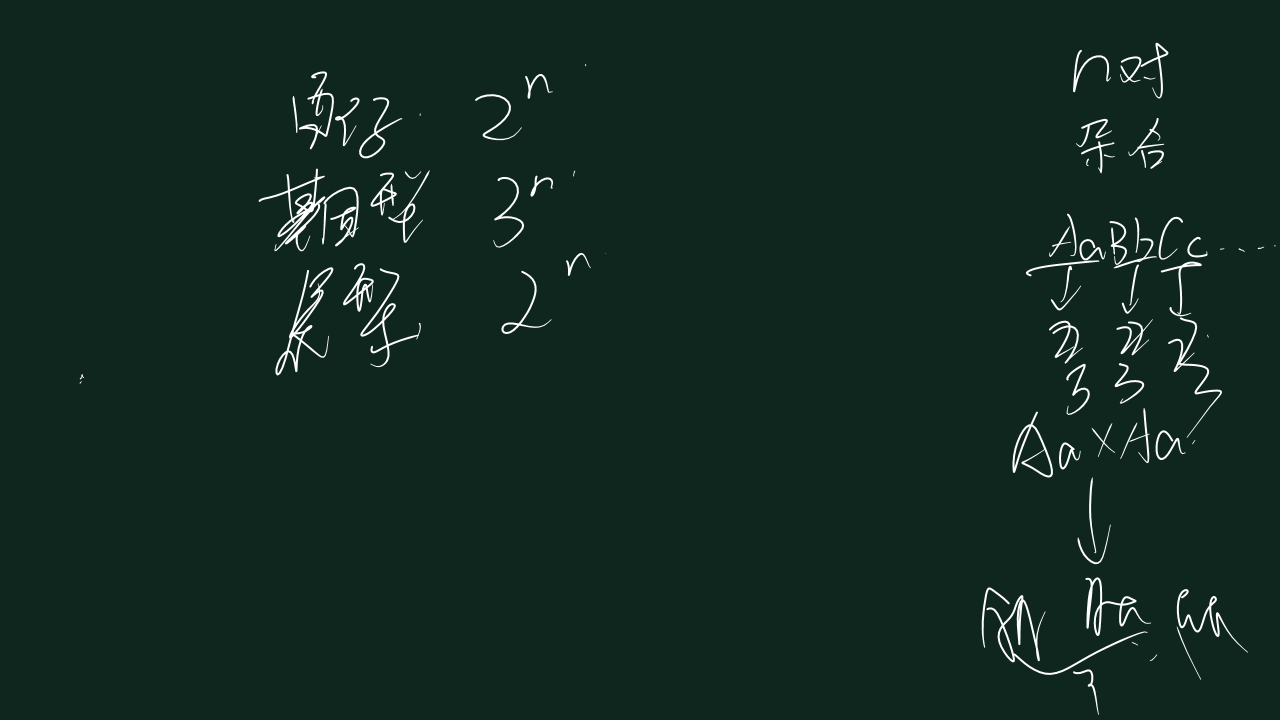 配子 2ⁿ
基因型 3ⁿ
表型 2ⁿ
n对
杂合
AaBbCc......
2 2 2
3 3 3
Aa×Aa
AA Aa aa